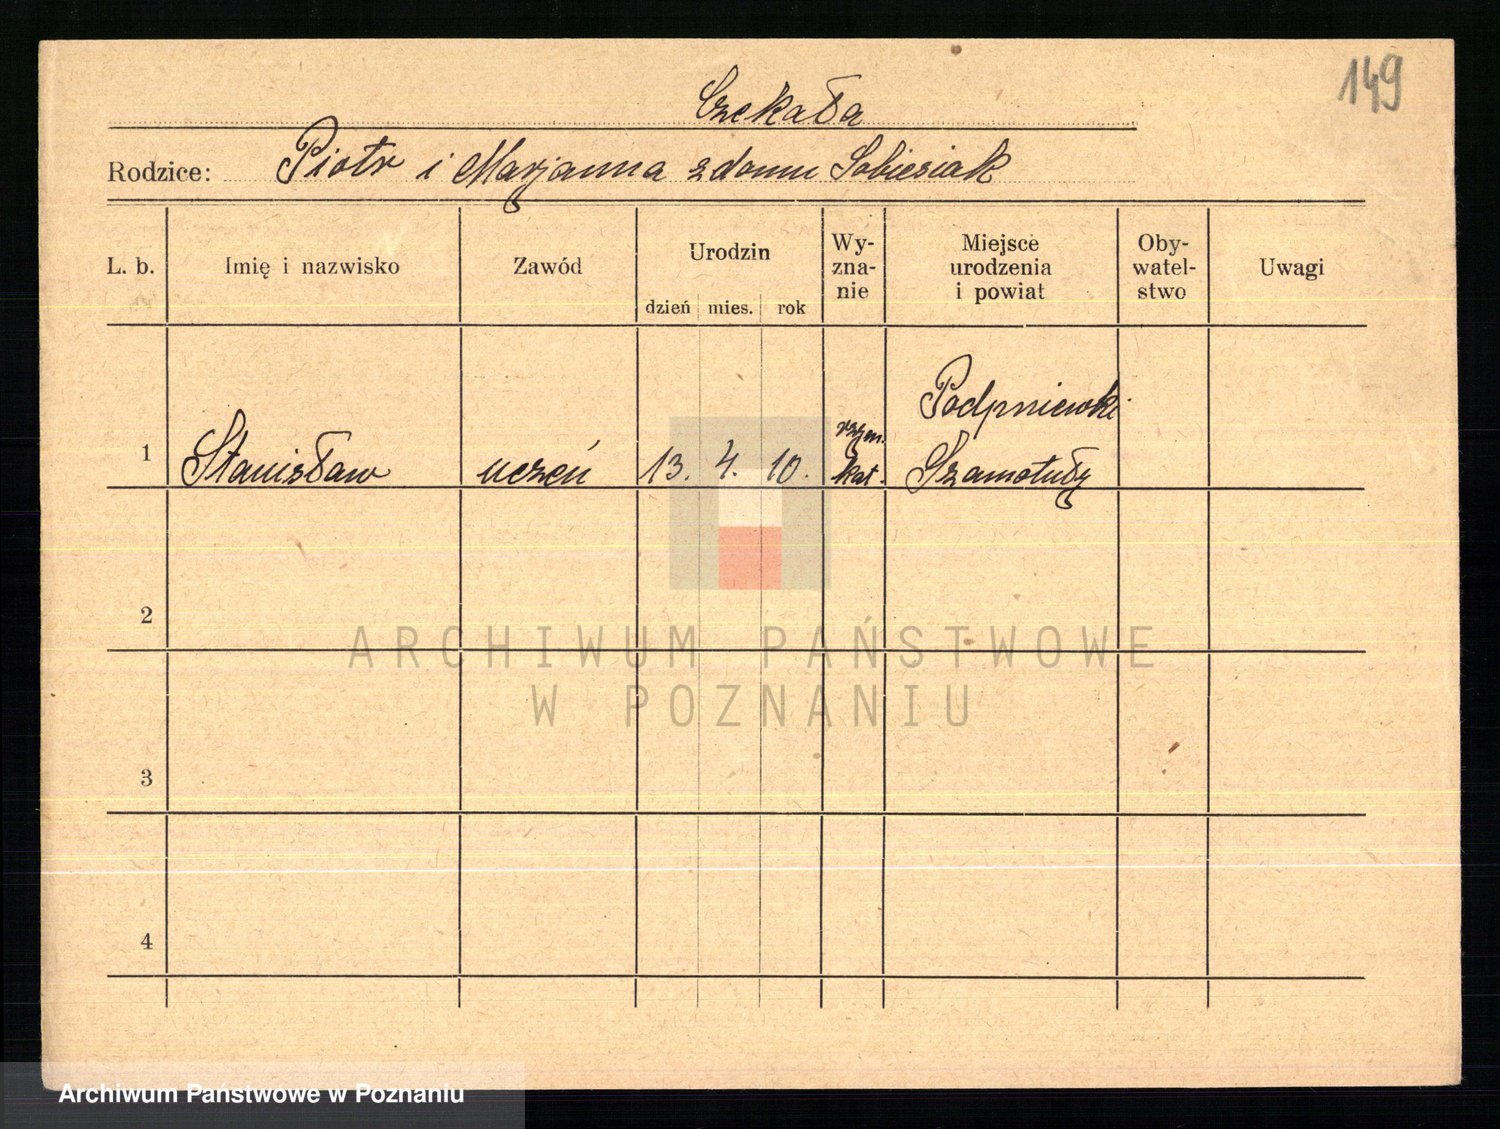 149
Czekała
Rodzice: Piotr i Marjanna z domu Sobiesiak
L. b. Imię i nazwisko Zawód Urodzin dzień mies. rok Wy-
zna-
nie Miejsce
urodzenia
i powiat Oby-
watel-
stwo Uwagi
Podpniewki
rzym.
1 Stanisław uczeń 13. 4. 10. kat. Szamotuły
2
ARCHIWUM PAŃSTWOWE
W POZNANIU
3
4
Archiwum Państwowe w Poznaniu